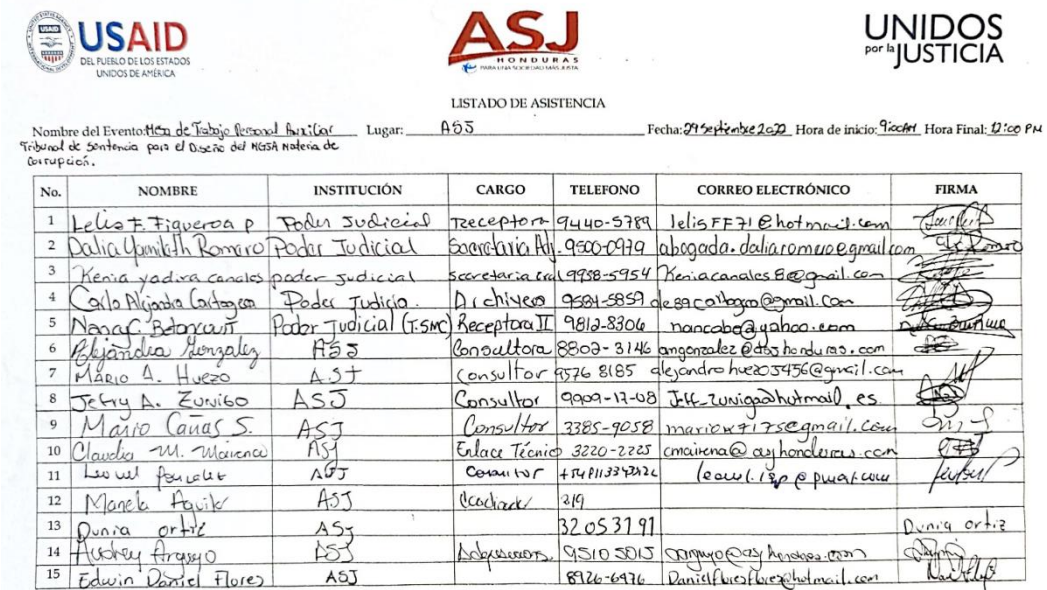 USAID
DEL PUEBLO DE LOS ESTADOS
UNIDOS DE AMÉRICA
ASJ
HONDURAS
PARA UNA SOCIEDAD MÁS JUSTA
UNIDOS
por la JUSTICIA
LISTADO DE ASISTENCIA
Nombre del Evento: Mesa de Trabajo Personal Auxiliar Lugar: ASJ Fecha: 29 septiembre 2022 Hora de inicio: 9:00AM Hora Final: 12:00 PM
Tribunal de Sentencia para el Diseño del MGSA Materia de
Corrupción.
No. NOMBRE INSTITUCIÓN CARGO TELEFONO CORREO ELECTRÓNICO FIRMA
1 Lelis F. Figueroa P Poder Judicial Receptora 9440-5789 lelisFF71@hotmail.com
2 Dalia Yamileth Romero Poder Judicial Secretaria Adj. 9500-0979 abogada.daliaromero@gmail.com
3 Kenia yadira canales poder judicial secretaria 9958-5954 Keniacanales8@gmail.com
4 Carlo Alejandro Cartagena Poder Judicio. Archivero 9584-5859
5 Nancy C. Betancourt Poder Judicial (T.SMC) Receptora II 9812-8306 nancabe@yahoo.com
6 Alejandra Gonzalez ASJ Consultora 8802-3146 amgonzalez@asjhonduras.com
7 MARIO A. Huezo ASJ Consultor 9576 8185 alejandrohuezo3456@gmail.com
8 Jefry A. Zuniga ASJ Consultor 9909-17-08 Jeff_zuniga@hotmail.es
9 Mario Cañas S. ASJ Consultor 3385-9058 mariow7175@gmail.com
10 Claudia M. Mairena ASJ Enlace Técnico 3220-2225 cmairena@asjhonduras.com
11 ASJ
12 Mariela Aguilar ASJ 219
13 Dunia ortiz ASJ 32053791 Dunia ortiz
14 Audrey Argeyo ASJ 9510 5015
15 Edwin Daniel Flores ASJ 8926-6976 Danielfloresflores@hotmail.com